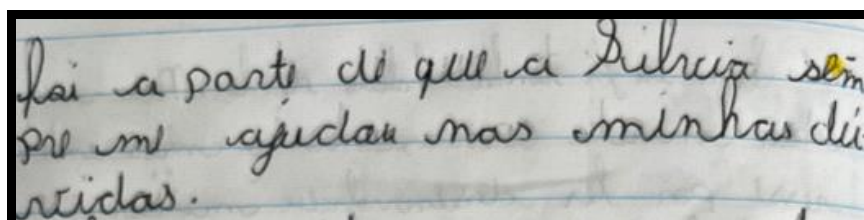 foi a parte de que a Silvia sem
pre me ajudau nas minhas dú
vidas.